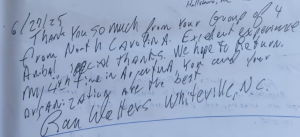 6/27/25
Thank you so much from Your Group of 4
from North Carolina. Excellent experience
special thanks. We hope to Return.
My time in Argentina. You and your
organization are the best
Walters Whiteville, N.C.